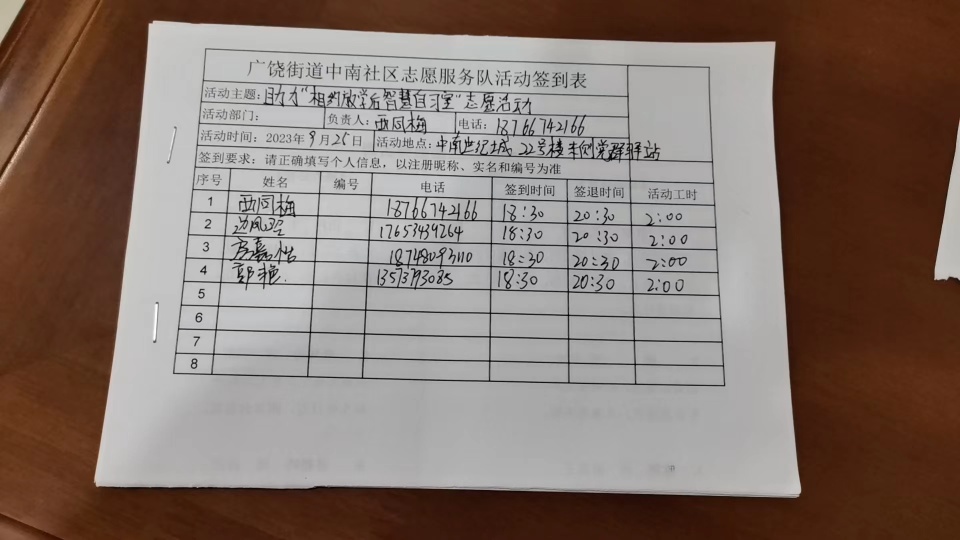 广饶街道中南社区志愿服务队活动签到表
活动主题：助力"相约放学后智慧自习室"志愿活动
活动部门： 负责人：西同梅 电话：18766742166
活动时间：2023年9月25日 活动地点：中南世纪城22号楼半侧党群驿站
签到要求：请正确填写个人信息，以注册昵称、实名和编号为准
序号 姓名 编号 电话 签到时间 签退时间 活动工时
1 西同梅 18766742166 18:30 20:30 2:00
2 17653434264 18:30 20:30 2:00
3 房嘉怡 18748093110 18:30 20:30 2:00
4 郭艳 18:30 20:30 2:00
5
6
7
8